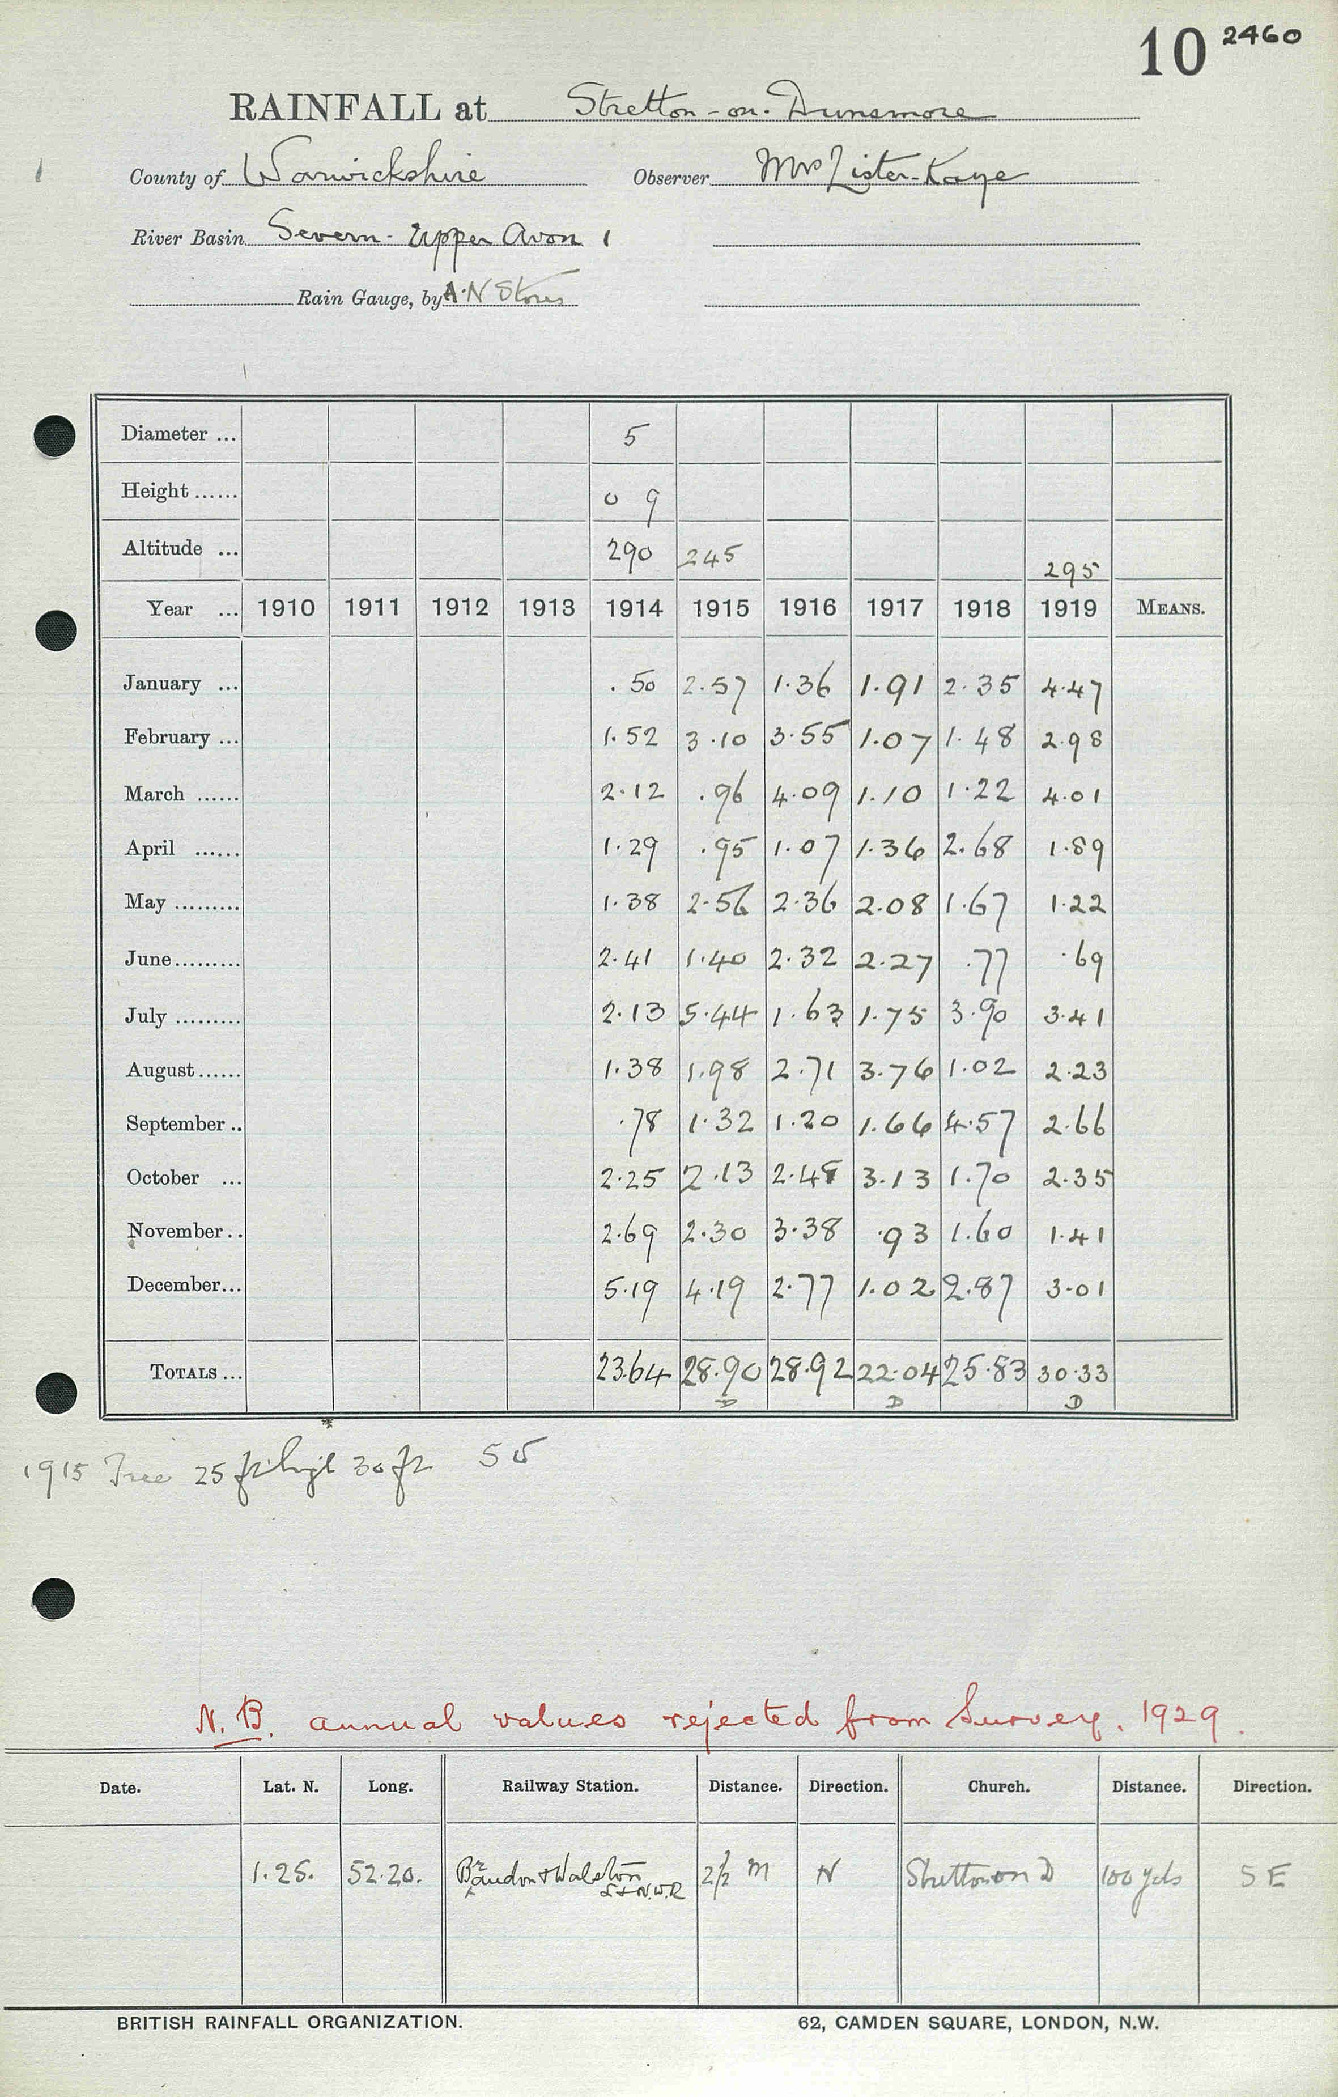 10 2460
RAINFALL at Stretton-on-Dunsmore
County of Warwickshire Observer Mrs Lister-Kaye
River Basin Severn - Upper Avon 1
Rain Gauge, by A.N Stores
Diameter ... 5
Height ...... 0 9
Altitude ... 290 245 295
Year ... 1910 1911 1912 1913 1914 1915 1916 1917 1918 1919 MEANS.
January ... .50 2.57 1.36 1.91 2.35 4.47
February ... 1.52 3.10 3.55 1.07 1.48 2.98
March ...... 2.12 .96 4.09 1.10 1.22 4.01
April ...... 1.29 .95 1.07 1.36 2.68 1.89
May ......... 1.38 2.56 2.36 2.08 1.67 1.22
June......... 2.41 1.40 2.32 2.27 .77 .69
July ......... 2.13 5.44 1.63 1.75 3.90 3.41
August...... 1.38 1.98 2.71 3.76 1.02 2.23
September .. .78 1.32 1.20 1.66 4.57 2.66
October ... 2.25 2.13 2.48 3.13 1.70 2.35
November.. 2.69 2.30 3.38 .93 1.60 1.41
December... 5.19 4.19 2.77 1.02 2.87 3.01
TOTALS ... 23.64 28.90 28.92 22.04 25.83 30.33
D D D
1915 Tree 25 ft high 30 ft
N.B. annual values rejected from Survey. 1929.
Date. Lat. N. Long. Railway Station. Distance. Direction. Church. Distance. Direction.
1.25. 52.20. Brandon & Walston 2½ M N Stretton on D 100 yds SE
L & N.W.R
BRITISH RAINFALL ORGANIZATION. 62, CAMDEN SQUARE, LONDON, N.W.